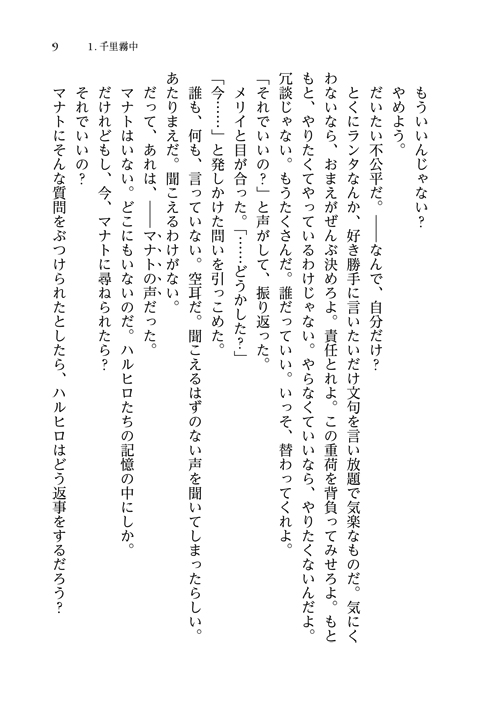 9
1.千里霧中
もういいんじゃない？
やめよう。
だいたい不公平だ。――なんで、自分だけ？
とくにランタなんか、好き勝手に言いたいだけ文句を言い放題で気楽なものだ。気にく
わないなら、おまえがぜんぶ決めろよ。責任とれよ。この重荷を背負ってみせろよ。もと
もと、やりたくてやっているわけじゃない。やらなくていいなら、やりたくないんだよ。
冗談じゃない。もうたくさんだ。誰だっていい。いっそ、替わってくれよ。
「それでいいの？」と声がして、振り返った。
メリイと目が合った。「……どうかした？」
「今……」と発しかけた問いを引っこめた。
誰も、何も、言っていない。空耳だ。聞こえるはずのない声を聞いてしまったらしい。
あたりまえだ。聞こえるわけがない。
だって、あれは、――マナトの声だった。
マナトはいない。どこにもいないのだ。ハルヒロたちの記憶の中にしか。
だけれどもし、今、マナトに尋ねられたら？
それでいいの？
マナトにそんな質問をぶつけられたとしたら、ハルヒロはどう返事をするだろう？